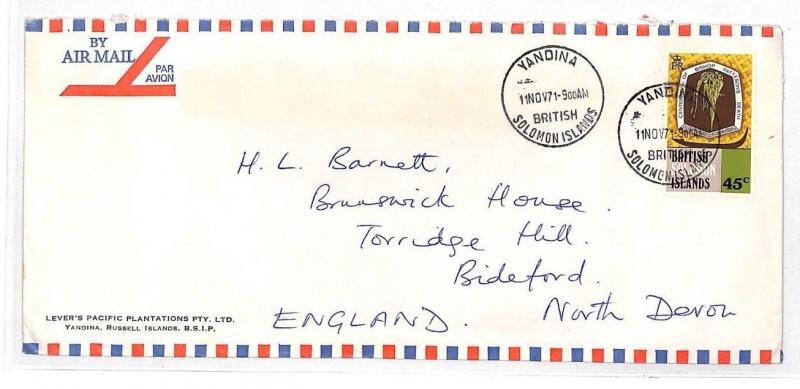 BY
AIR MAIL
PAR
AVION
YANDINA
11NOV71-900AM
BRITISH
SOLOMON ISLANDS
YANDINA
11NOV71-900AM
BRITISH
SOLOMON ISLANDS
CENTENARY OF BISHOP PATTESON'S DEATH
BRITISH
SOLOMON
ISLANDS 45c
H. L. Barnett,
Brunswick House.
Torridge Hill.
Bideford.
North Devon
ENGLAND.
LEVER'S PACIFIC PLANTATIONS PTY. LTD.
YANDINA, RUSSELL ISLANDS. B.S.I.P.